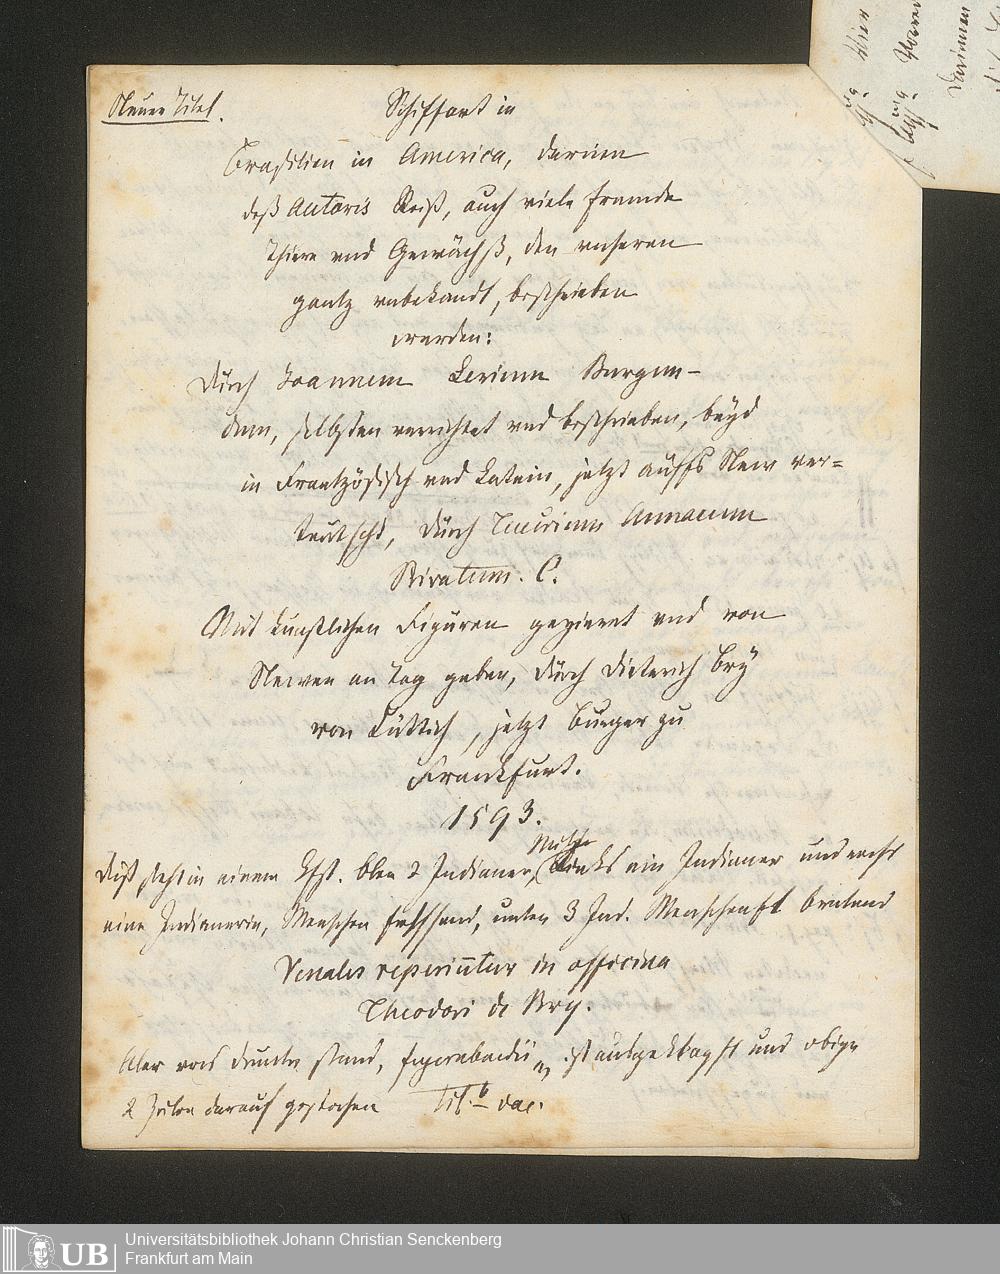 Neuer Titel.
Schiffart in
Brasilien in America, darinn
deß Autoris Reiß, auch viele frembde
Thiere und Gewächß, den unseren
gantz unbekandt, beschrieben
werden:
Durch Joannem Lerium Burgun-
dum, selbsten verrichtet und beschrieben, beyd
in Frantzösisch und Latein, jetzt auffs New ver=
teutscht, durch Teucrium Annaeum
Privatum. C.
Mit kunstlichen Figuren gezieret und von
Newen an Tag geben, durch Dieterich Bry
von Lüttich, jetzt Burger zu
Franckfurt.
1593.
Mütze
Diß steht in einem Kfst. oben 2 Indianer, links ein Indianer und rechts
eine Indianerin, Menschen fressend, unten 3 Ind. Menschenfl. bratend
Venales reperiutur in officina
Theodori de Bry.
Aber was drunter stand, ist ausgeklopft und obige
2 Zeilen darauf gestochen Tit. vac.
Universitätsbibliothek Johann Christian Senckenberg
Frankfurt am Main
UB